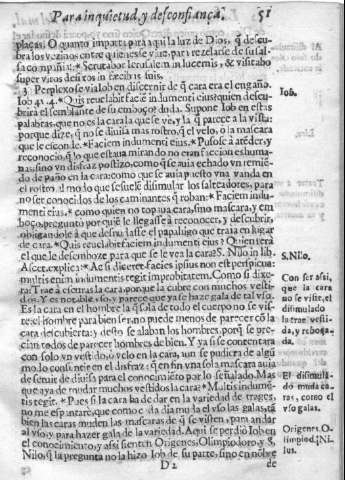 Para inquietud, y desconfiança. 51
plaças. O quanto importara aqui la luz de Dios, q̃ descu-
bra los vezinos entre quienes se vive, para rezelarse de su fal-
sa compañia: * Scrutabor Ierusalem in lucernis, & visitabo
super viros defixos in fæcibus suis.
3 Perplexo se via Iob en discernir de q̃ cara era el engaño.
Iob 41. 4. * Quis reuelabit faciẽ indumenti eius: quien descu-
brirà el semblante de su emboço? duda. Supone Iob en estas
palabras, que no es la cara la que se vè, y la q̃ parece a la vista:
porque dize, q̃ no se diuisa mas rostro, q̃ el velo, ò la mascara
que le esconde. * Faciem indumenti eius. Pusose à atẽder, y
reconociò, q̃ lo que estaua mirando no eran facciones huma-
nas, sino vn disfraz postizo, como q̃ se auia echado vn remiẽ-
do de paño en la cara: como que se auia puesto vna vanda en
el rostro, al modo que se suele disimular los salteadores, para
no ser conocidos de los caminantes q̃ roban: * Faciem indu-
menti eius, * como quien no topaua cara, sino mascara, y em-
boço, preguntò por quiẽ le llegasse à reconocer, y descubrir,
obligandole à que desembolasse el papaligo que traia en lugar
de cara. * Quis reuelabit faciẽ indumenti eius? Quien serà
el que le desemboze para que se le vea la cara? S. Nilo in lib.
Ascet. explica: * Ac si diceret: facies ipsius non est perspicua:
multis enim indumentis tegit improbitatem. Como si dixe-
ra: Trae à ciertas la cara, porque la cubre con muchos vesti-
dos. Y es notable vso, y parece que ya se haze gala de tal vso.
Es la cara en el hombre la q̃ sola de todo el cuerpo no se vis-
te: el hombre para bien ser, no puede menos de parecer cõ la
cara descubierta; y desto se alaban los hombres, porq̃ se pre-
cian todos de parecer hombres de bien. Y ya si se contentara
con solo vn vestido, ò velo en la cara, aun se pudiera de algũ
modo consentir en el disfraz: q̃ en fin vna sola mascara auia
de seruir de diuisa para el conocimiẽto por lo señalado. Mas
que aya de mudar muchos vestidos la cara: * Multis indumẽ-
tis tegit. * Pues si la cara ha de dar en la variedad de trages,
no me espantarè, que como cada dia muda el vso las galas, tã
bien las caras muden las mascaras de q̃ se visten, para andar
al vso, y para hazer gala de la variedad. Aqui se perdiò Iob en
el conocimiento, y assi sienten Origenes, Olimpiodoro, y S.
Nilo, q̃ la pregunta no la hizo Iob de su parte, sino en nõbre
D 2 de
Iob.
S. Nilo.
Con ser assi,
que la cara
no se viste, el
disimulado
la trae vesti-
da, y reboça-
da.
El disimula-
do muda ca-
ras, como el
vso galas.
Origenes. O-
limpiod. Ni-
lus.